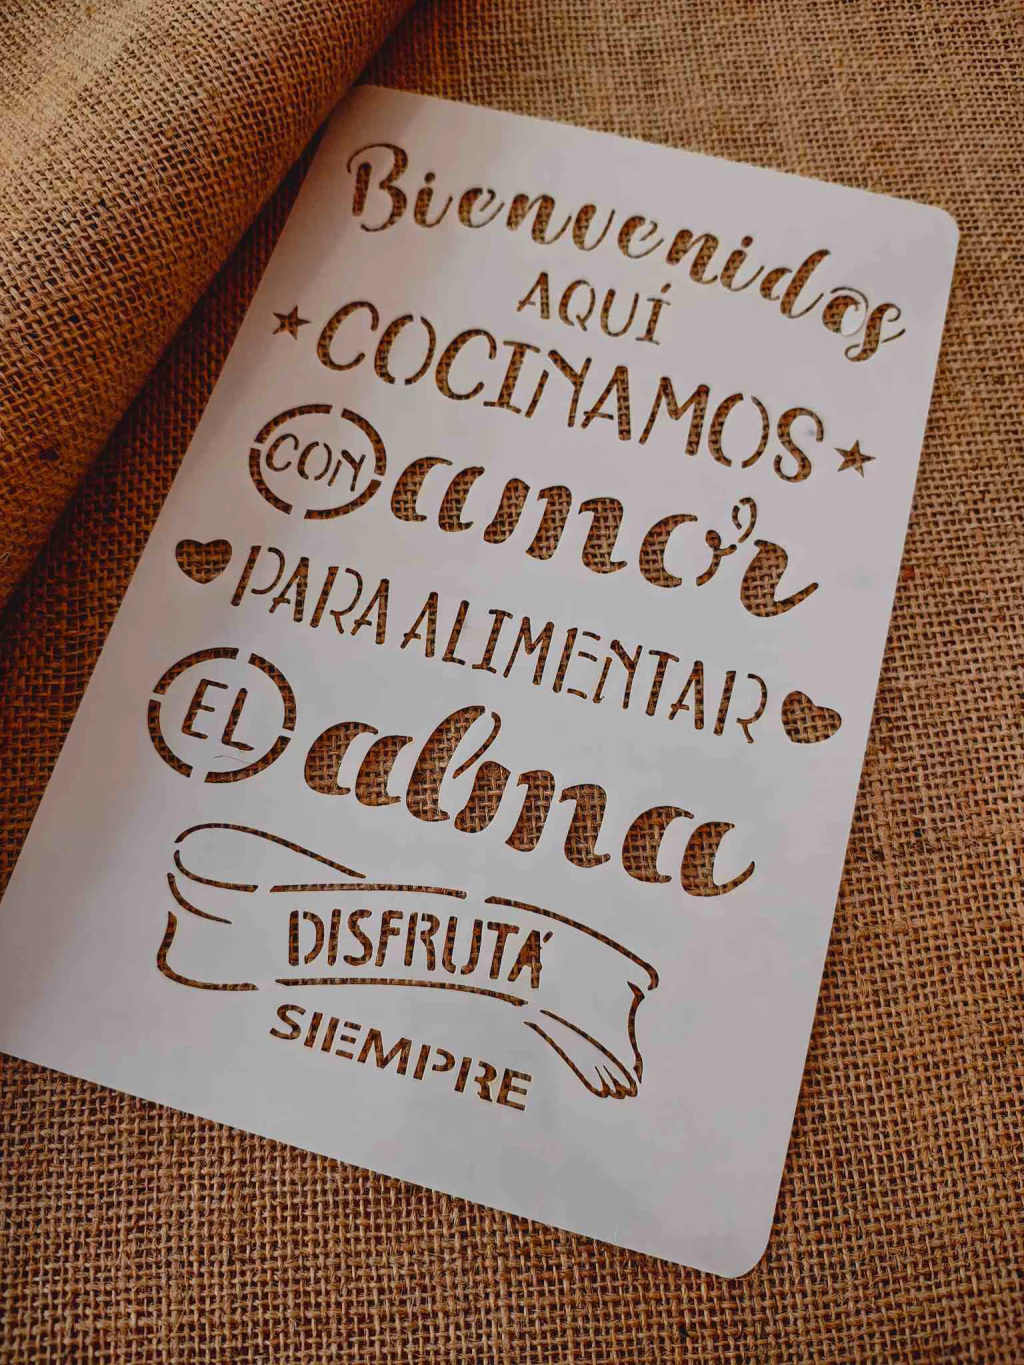 Bienvenidos
AQUÍ
COCINAMOS
CON amor
PARA ALIMENTAR
EL alma
DISFRUTÁ
SIEMPRE